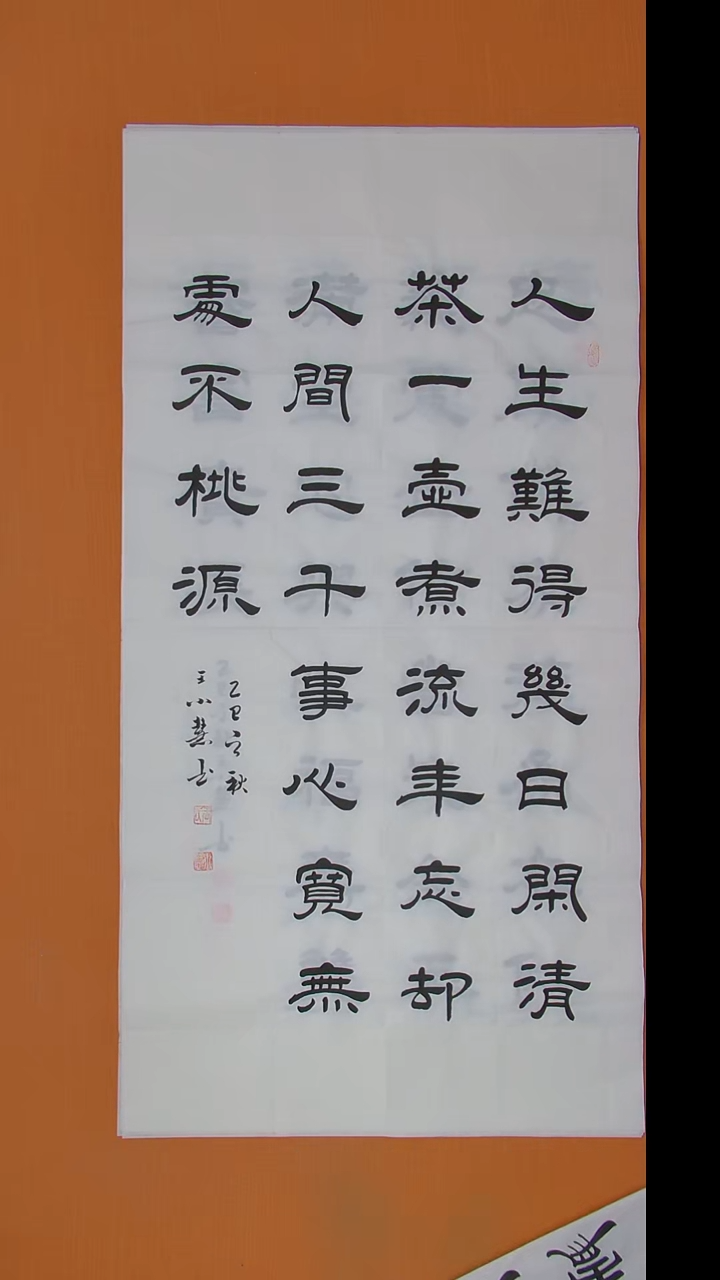 人生難得幾日閑清
茶一壺煮流年忘却
人間三千事心寬無
處不桃源
乙巳之秋
王小慧书